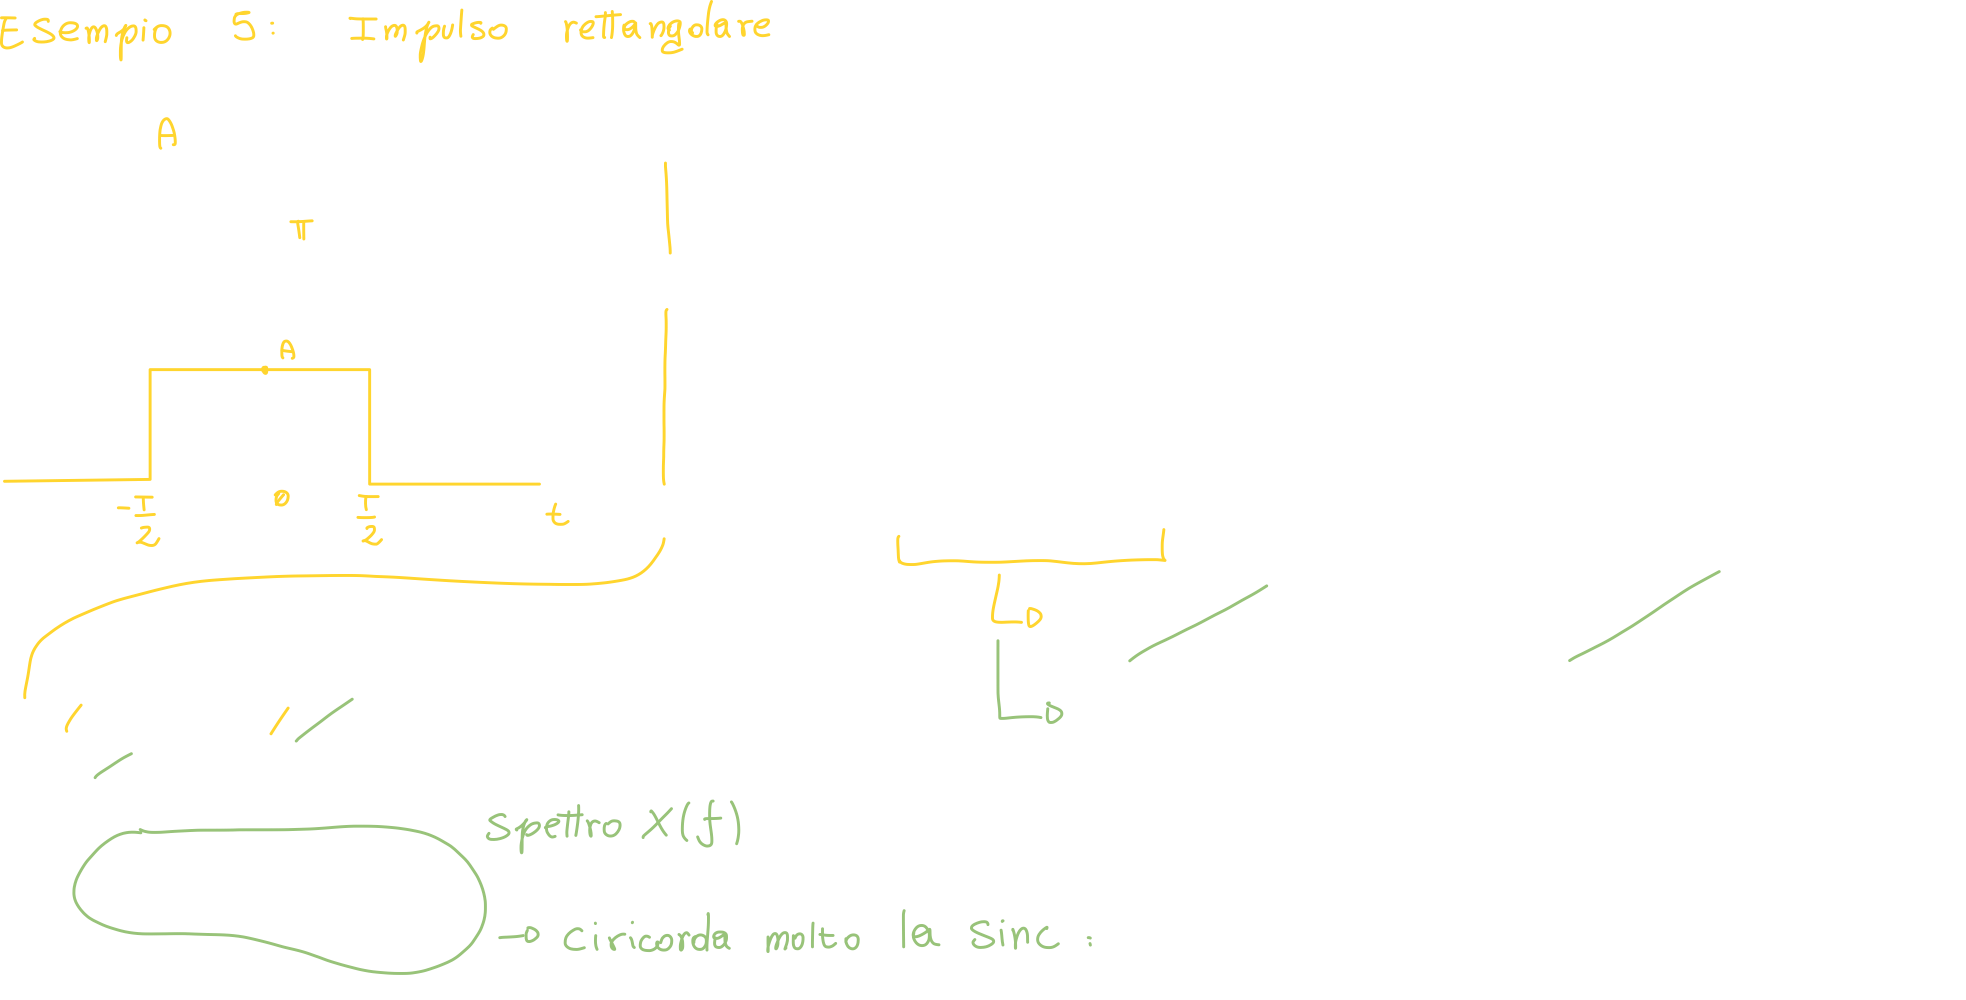 Esempio 5: Impulso rettangolare
A
π
A
-T/2 0 T/2 t
Spettro X(f)
Ci ricorda molto la sinc :